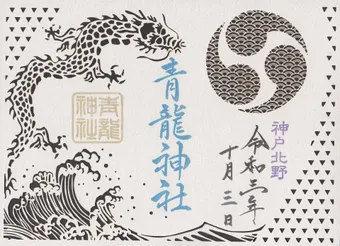 青龍神社
神戸北野
令和三年
十月三日
青龍
神社